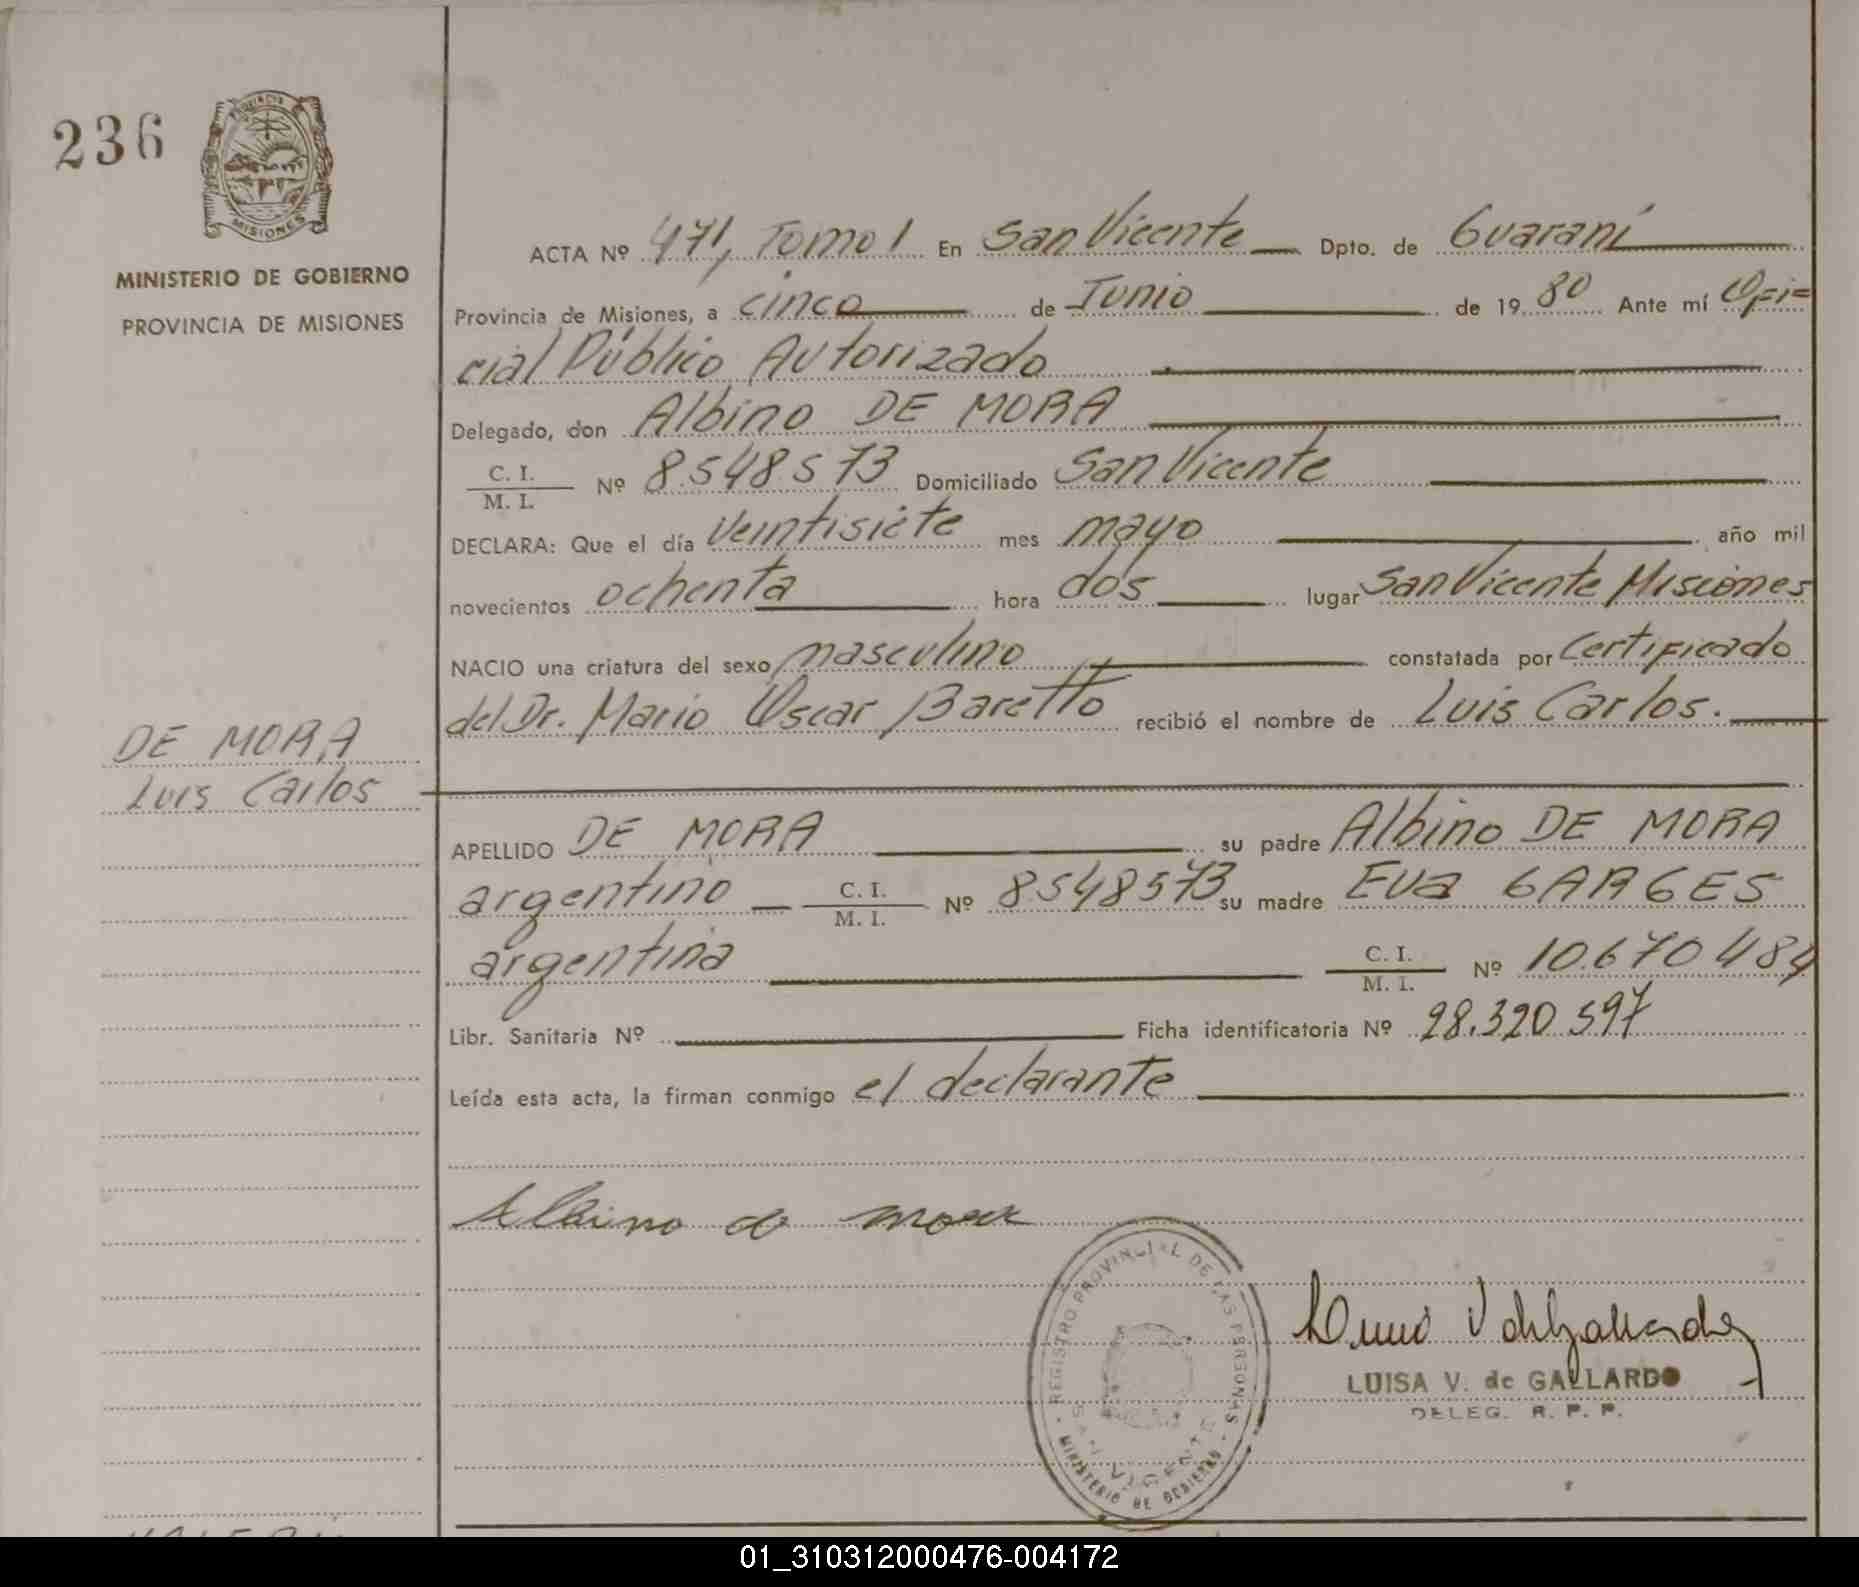 236
PROVINCIA
MISIONES
MINISTERIO DE GOBIERNO
PROVINCIA DE MISIONES
ACTA Nº 471, Tomo I En San Vicente Dpto. de Guaraní
Provincia de Misiones, a cinco de Junio de 1980 Ante mí Ofi=
cial Público Autorizado
Delegado, don Albino DE MORA
C. I.
M. I.
Nº 8.548.573 Domiciliado San Vicente
DECLARA: Que el día veintisiete mes mayo año mil
novecientos ochenta hora dos lugar San Vicente Misiones
NACIO una criatura del sexo masculino constatada por Certificado
del Dr. Mario Oscar Baretto recibió el nombre de Luis Carlos.
DE MORA
Luis Carlos
APELLIDO DE MORA su padre Albino DE MORA
argentino C. I.
M. I.
Nº 8548573 su madre Eva GARGES
argentina C. I.
M. I.
Nº 10.670484
Libr. Sanitaria Nº Ficha identificatoria Nº 28.320 597
Leída esta acta, la firman conmigo el declarante
Albino de mora
REGISTRO PROVINCIAL DE LAS PERSONAS
SAN VICENTE
MINISTERIO DE GOBIERNO
LUISA V. de GALLARDO
DELEG. R. P. P.
01_310312000476-004172